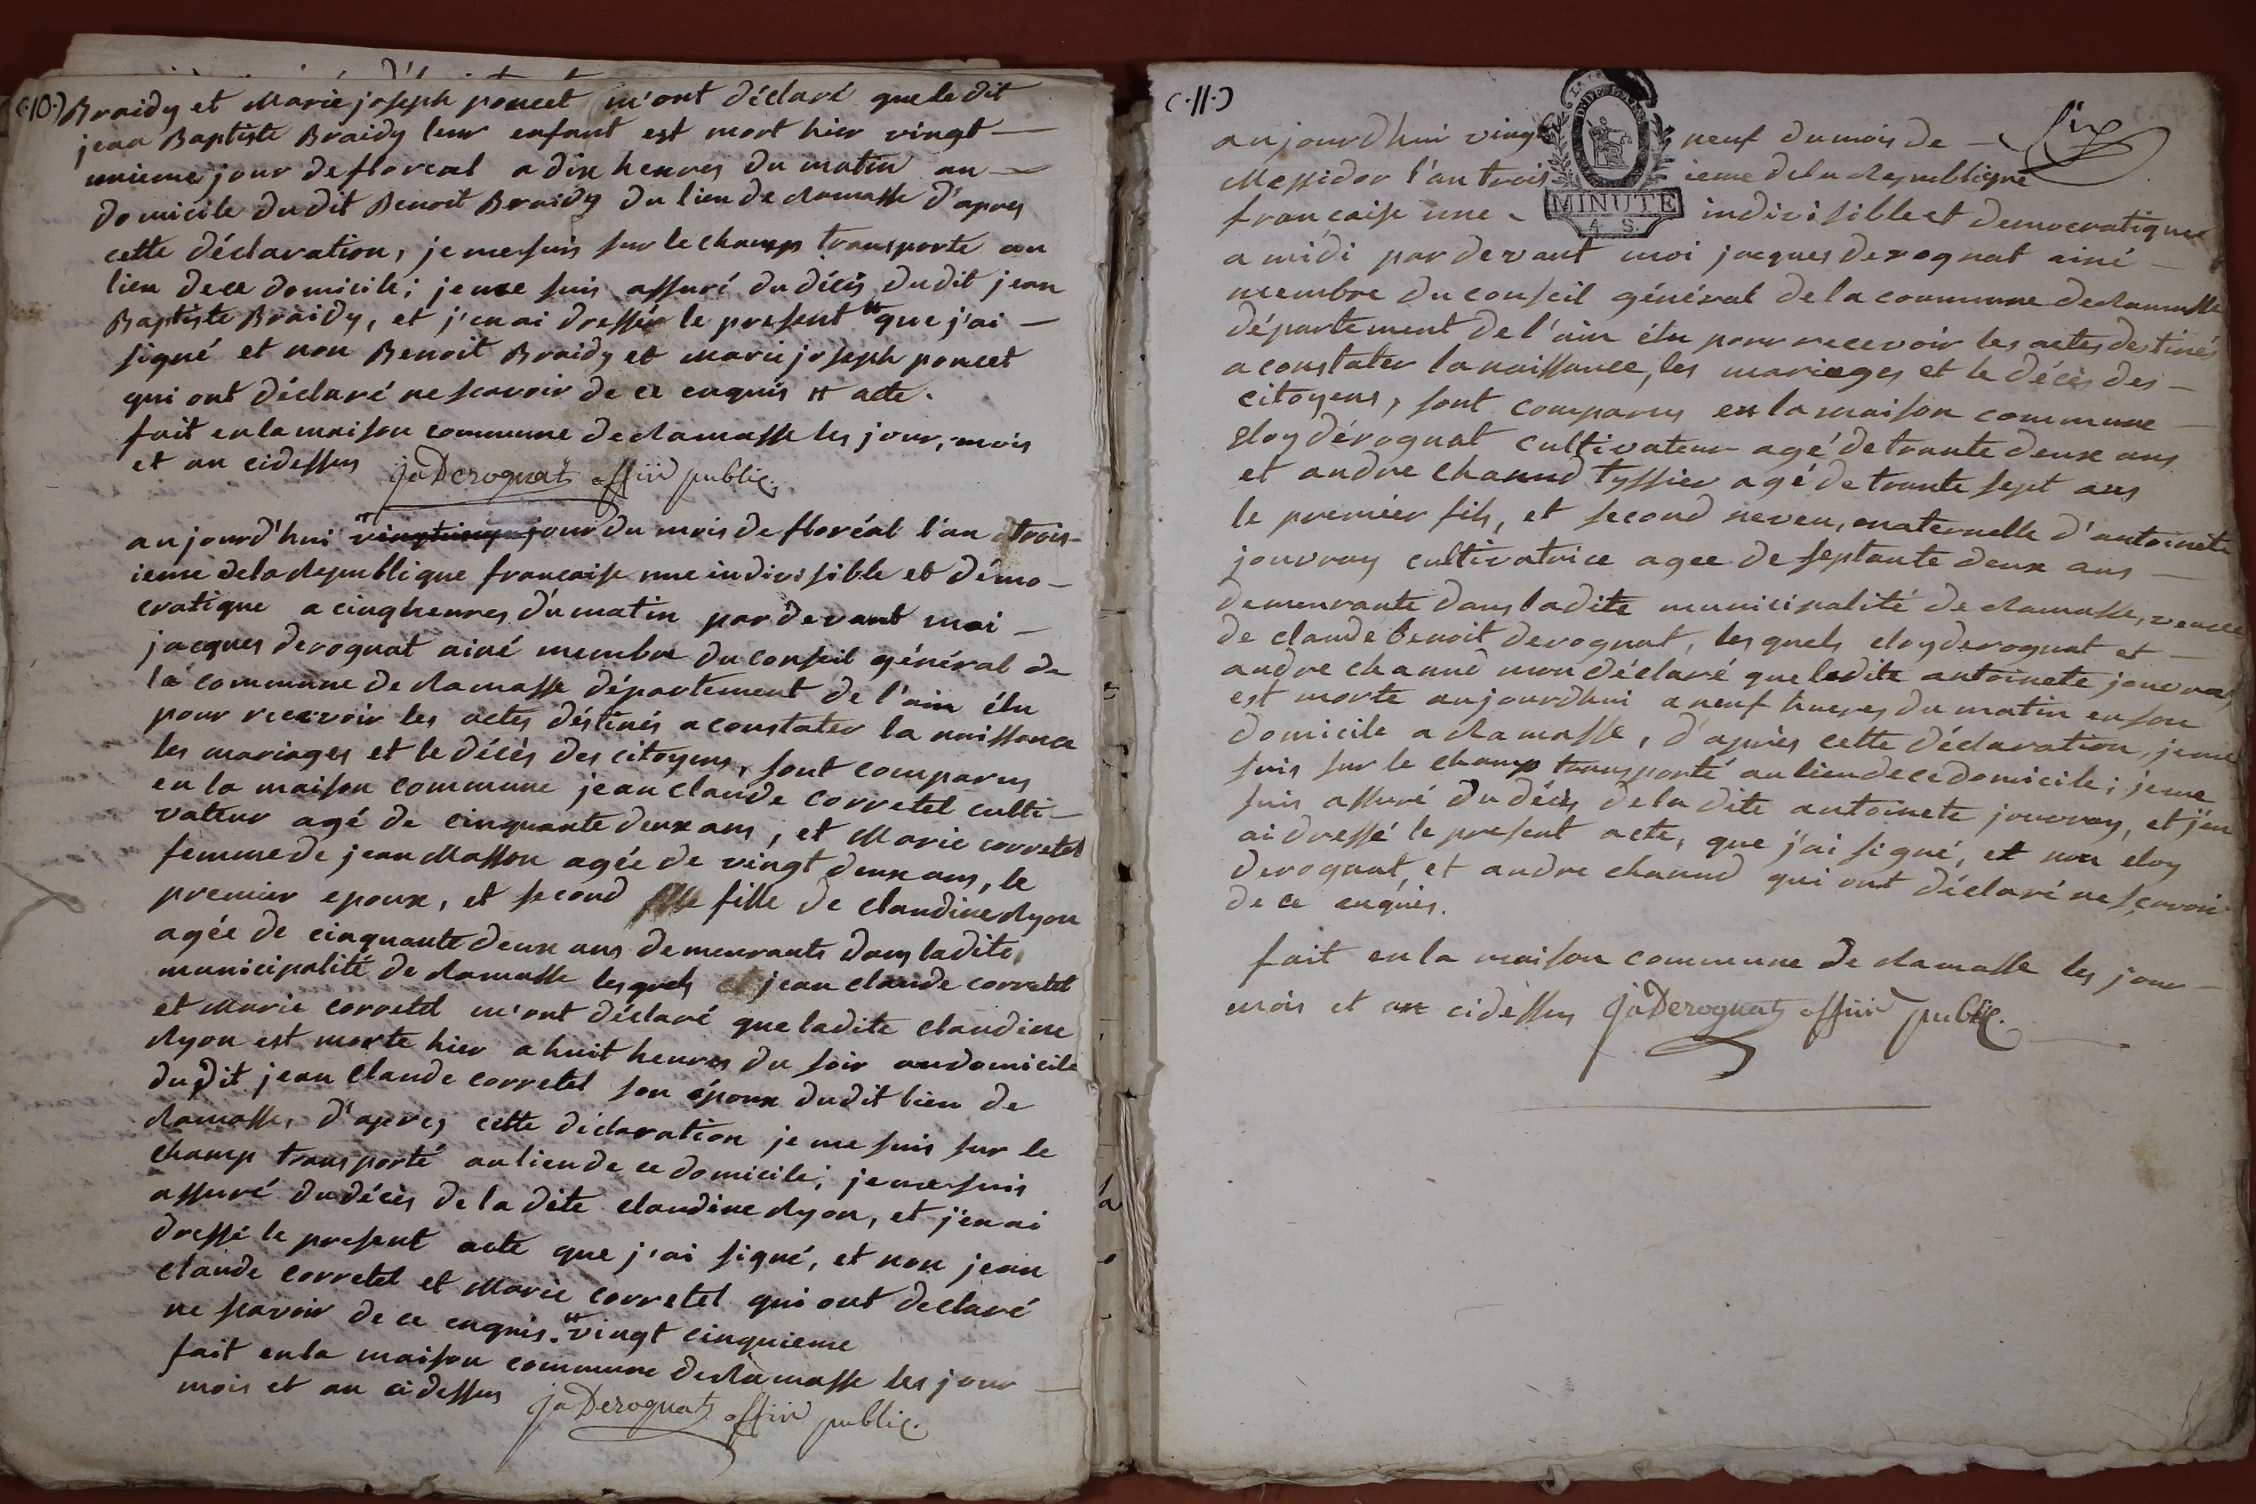 (.10.) Braidy et Marie joseph poncet m'ont déclaré que le dit
jean Baptiste Braidy leur enfant est mort hier vingt —
unieme jour de floreal a dix heures du matin au —
domicile du dit Benoit Braidy du lieu de Ramasse d'apres
cette déclaration, je me suis sur le champ transporte au
lieu de ce domicile; je me suis assuré du décès du dit jean
Baptiste Braidy, et j'en ai dressér le present # que j'ai —
signé et non Benoit Braidy et marie joseph poncet
qui ont déclaré ne scavoir de ce enquis # acte.
fait en la maison commune de Ramasse les jour, mois
et an cidessus jaDerognat offiir public.
aujourd'hui # jour du mois de floréal l'an trois-
ieme de la Republique francaise une indivisible et démo-
cratique a cinq heures du matin par devant moi —
jacques derognat ainé membre du conseil général de
la commune de Ramasse département de l'ain élu
pour recevoir les actes déstinés a constater la naissance
les mariages et le décès des citoyens, sont comparus
en la maison commune jean claude corretel culti-
vateur agé de cinquante deux ans, et Marie corretel
femme de jean Masson agée de vingt deux ans, le
premier epoux, et second fille de claudine Ryon
agée de cinquante deux ans demeurants dans ladite
municipalité de Ramasse les quels jean claude corretel
et Marie corretel m'ont déclaré que ladite claudine
Ryon est morte hier a huit heures du soir au domicile
du dit jean Claude corretel son époux dudit lieu de
Ramasse, d'apres cette déclaration je me suis sur le
champ transporté au lieu de ce domicile; je me suis
assuré du décès de la dite claudine Ryon, et j'en ai
dressé le present acte que j'ai signé, et non jean
claude corretel et Marie corretel qui ont declaré
ne scavoir de ce enquis. # vingt cinquieme
fait en la maison commune de Ramasse les jour —
mois et an cidessus jaDerognat offiir public.
(.11.)
aujourdhui vingt neuf du mois de —
Messidor l'an trois ieme de la Republique
francaise une - indivisible et democratique
MINUTE
4. S.
a midi par devant moi jacques derognat ainé —
membre du conseil général de la commune de Ramasse
département de l'ain élu pour recevoir les actes destinés
a constater la naissance, les mariages et le décès des —
citoyens, sont comparus en la maison commune —
Eloy dérognat cultivateur agé de trante deux ans
et andre chanud tyssier agé de trante sept ans
le premiér fils, et second neveu, maternelle d'antoinete
jouvray cultivatrice agee de septante deux ans —
demeurante dans ladite municipalité de Ramasse, veuve
de claude benoit derognat, les quels eloy derognat et —
andre chanud mon déclaré que ladite antoinete jouvray
est morte aujourdhui a neuf hueres du matin en son
domicile a Ramasse, d'après cette déclaration, je me
suis sur le champ transporté au lieu de ce domicile; je me
suis assuré du décès de la dite antoinete jouvray, et j'en
ai dressé le present acte, que j'ai signé, et non eloy
derognat et andre chanud qui ont déclaré ne scavoir
de ce enquis.
fait en la maison commune de Ramasse les jour —
mois et an cidessus jaDerognat offiir public.